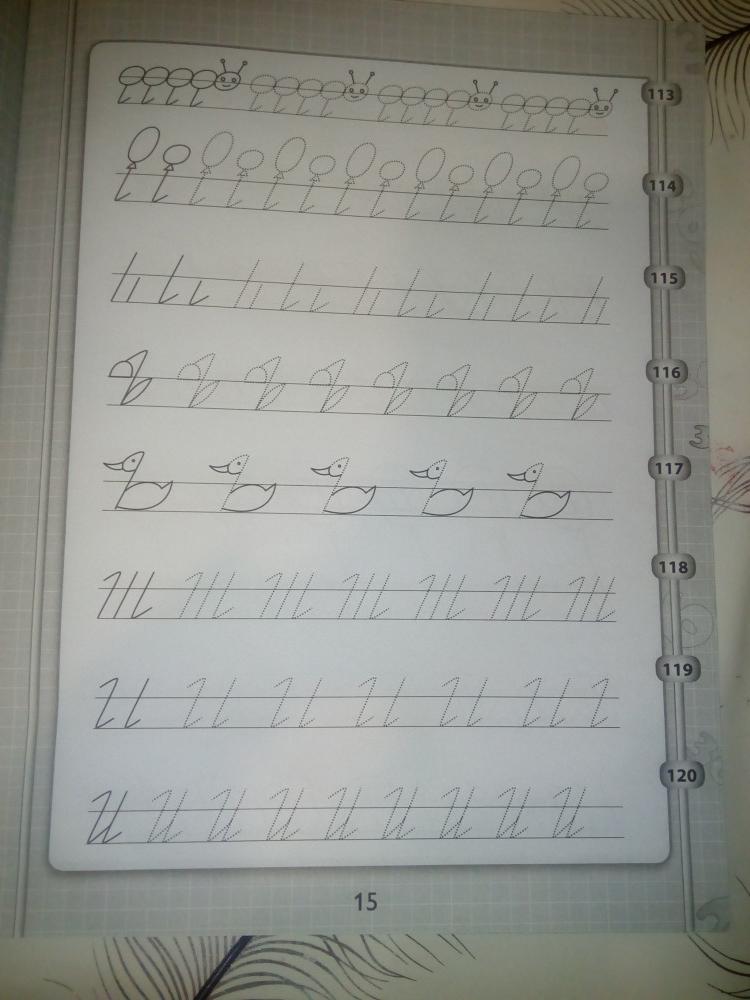 113
114
115
116
117
118
119
120
15